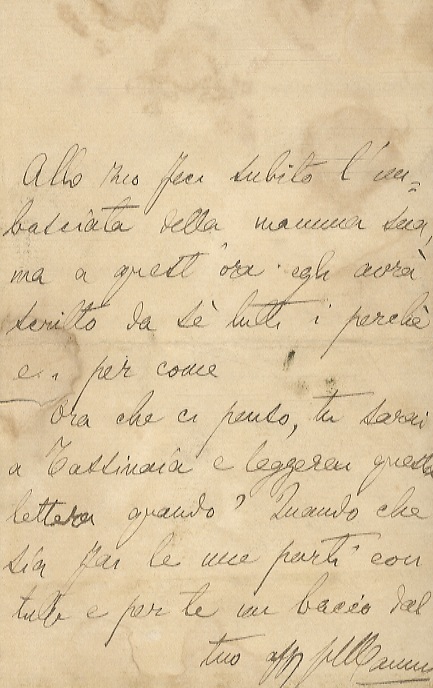 Allo zio feci subito l'im=
basciata della mamma sua,
ma a quest'ora egli avrà
scritto da sè tutti i perchè
e i per come
Ora che ci penso, tu sarai
a Tassinaia e leggerai questa
lettera quando? Quando che
sia fai le mie parti con
tutti e per te un bacio dal
tuo aff